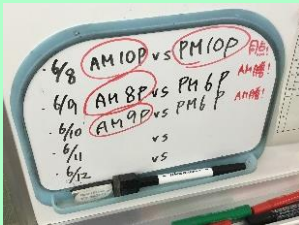 ・6/8 AM10P vs PM10P 同点!
・6/9 AM8P vs PM6P AM勝!
・6/10 AM9P vs PM6P AM勝!
・6/11 vs
・6/12 vs